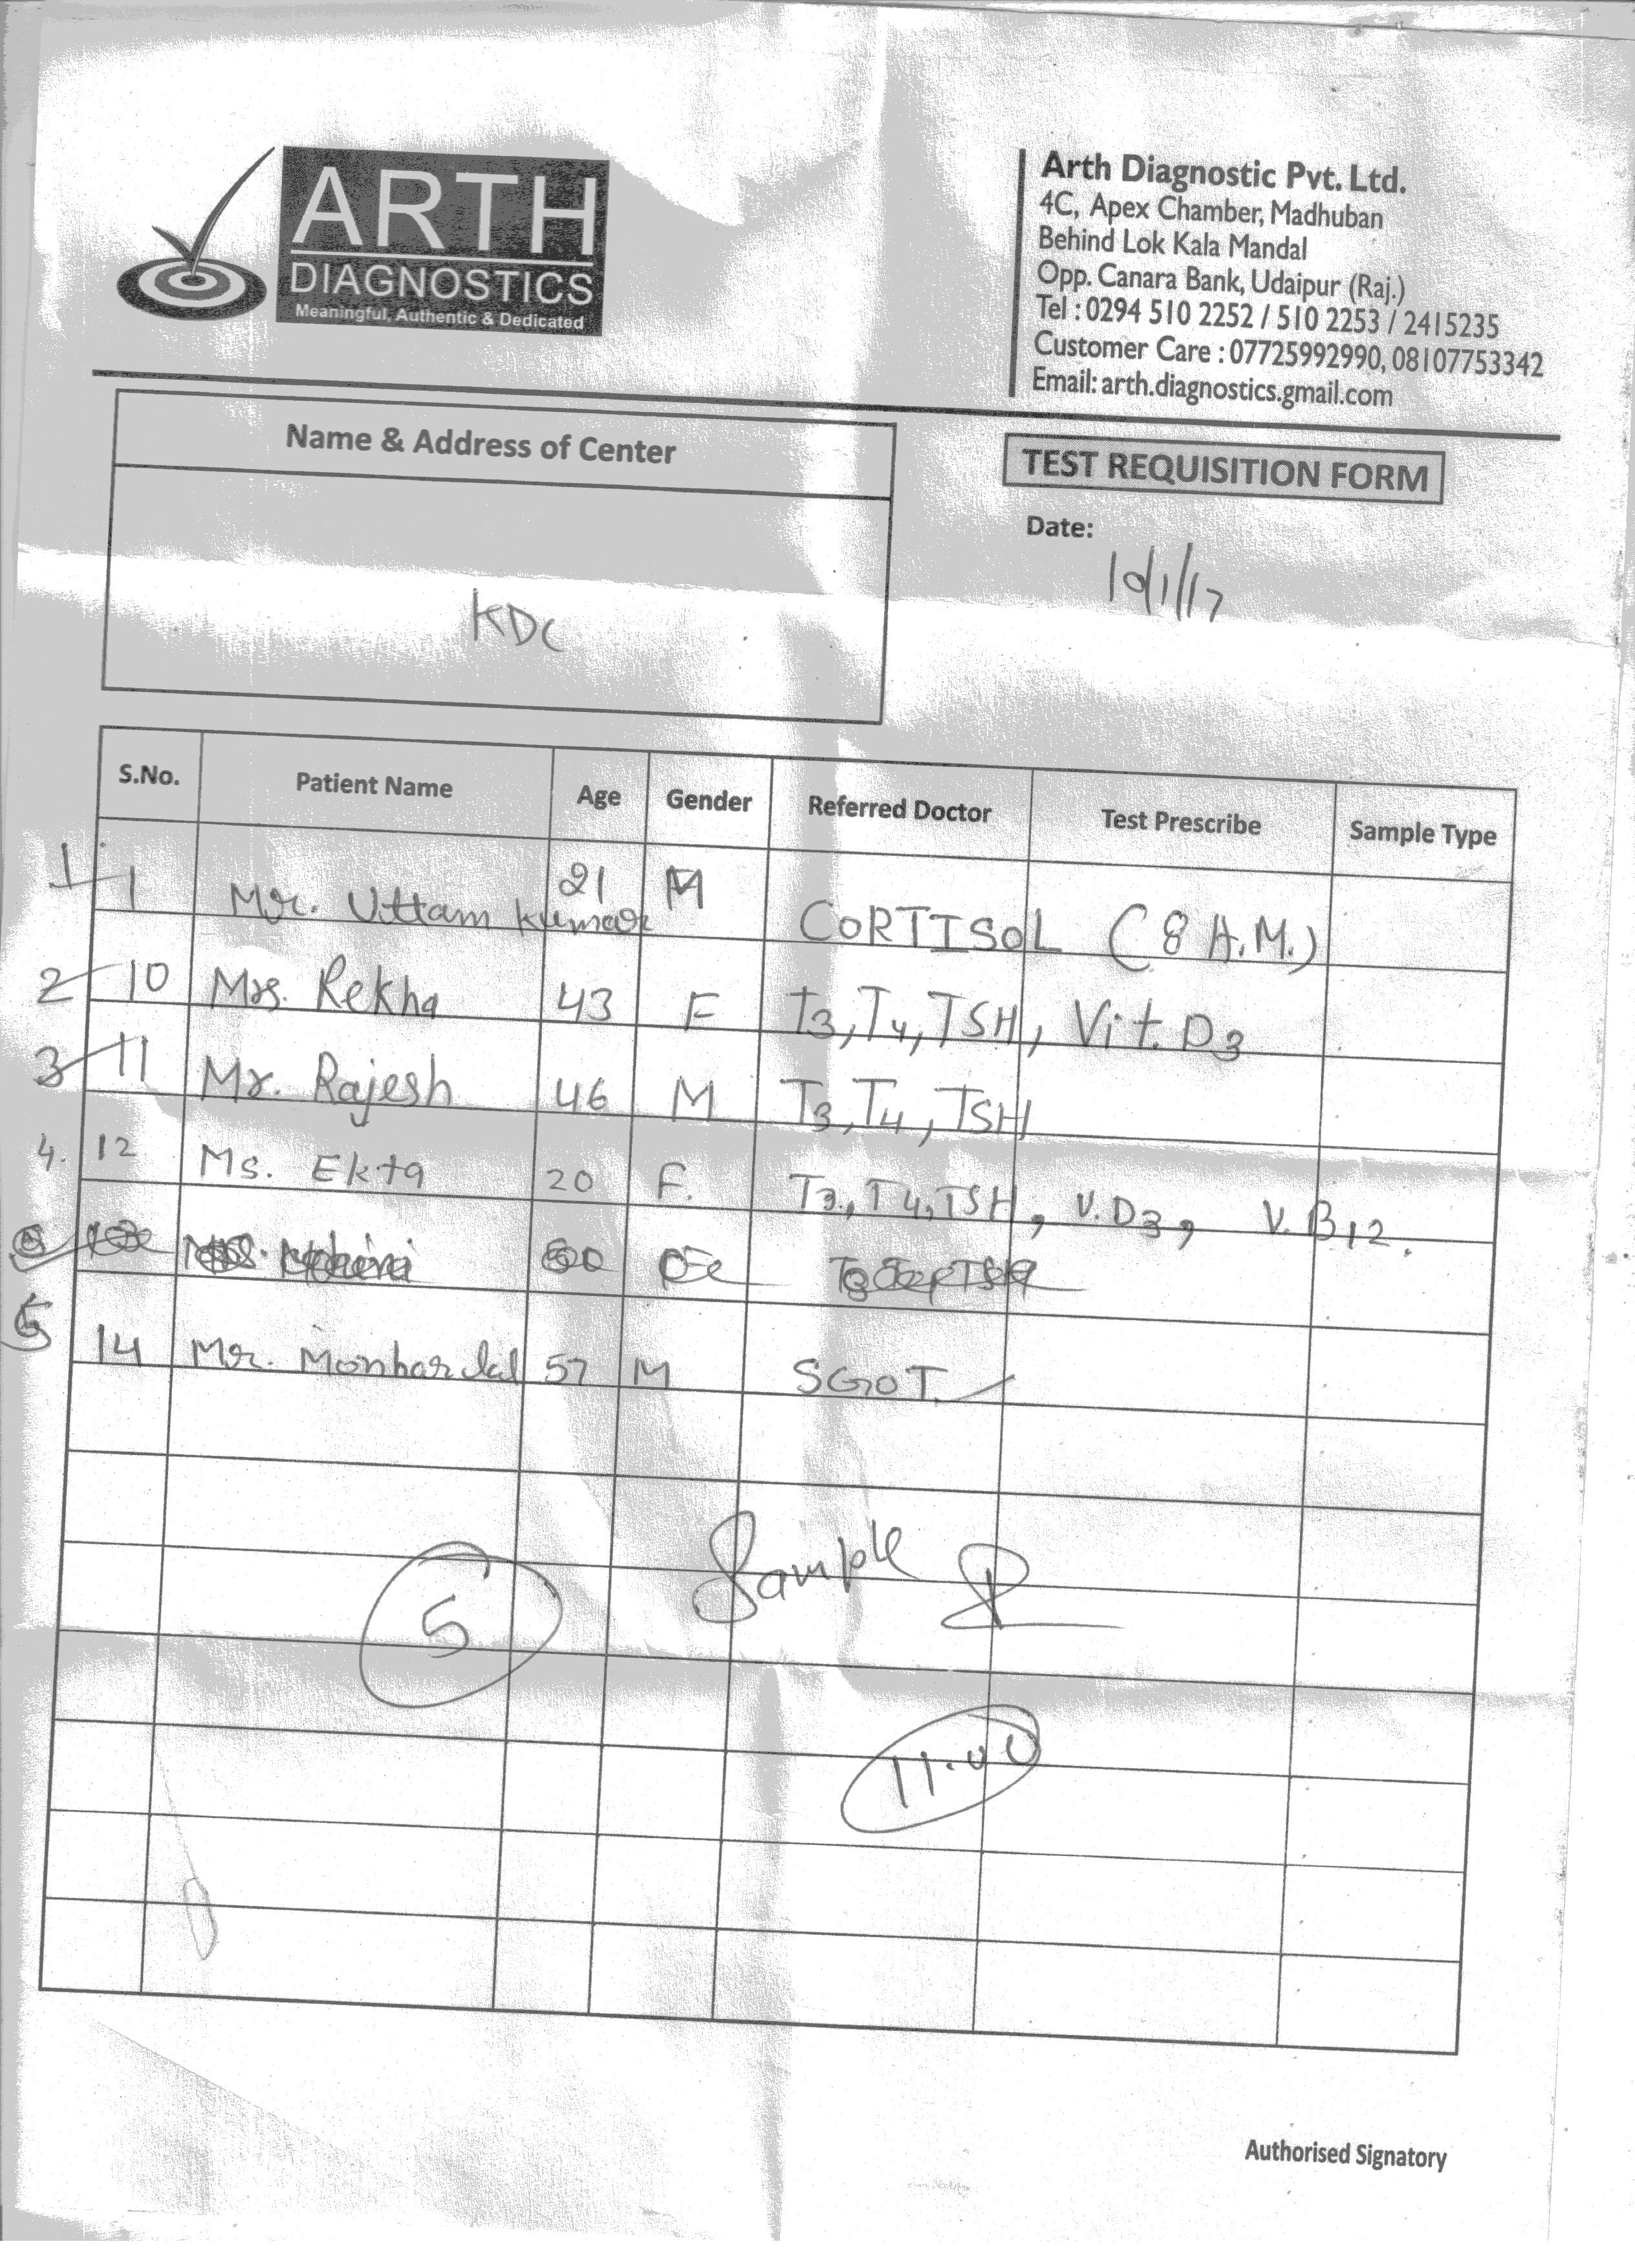 ARTH
DIAGNOSTICS
Meaningful, Authentic & Dedicated
Arth Diagnostic Pvt. Ltd.
4C, Apex Chamber, Madhuban
Behind Lok Kala Mandal
Opp. Canara Bank, Udaipur (Raj.)
Tel : 0294 510 2252 / 510 2253 / 2415235
Customer Care : 07725992990, 08107753342
Email: arth.diagnostics.gmail.com
Name & Address of Center
KDC
TEST REQUISITION FORM
Date:
10/1/17
S.No. Patient Name Age Gender Referred Doctor Test Prescribe Sample Type
1 1 Mr. Uttam Kumar 21 M CORTISOL (8 A.M.)
2 10 Mrs. Rekha 43 F T3, T4, TSH, Vit. D3
3 11 Mr. Rajesh 46 M T3, T4, TSH
4. 12 Ms. Ekta 20 F. T3, T4, TSH, V.D3, V.B12.
5 14 Mr. Monhar Lal 57 M SGOT
5 Sample
11.00
Authorised Signatory